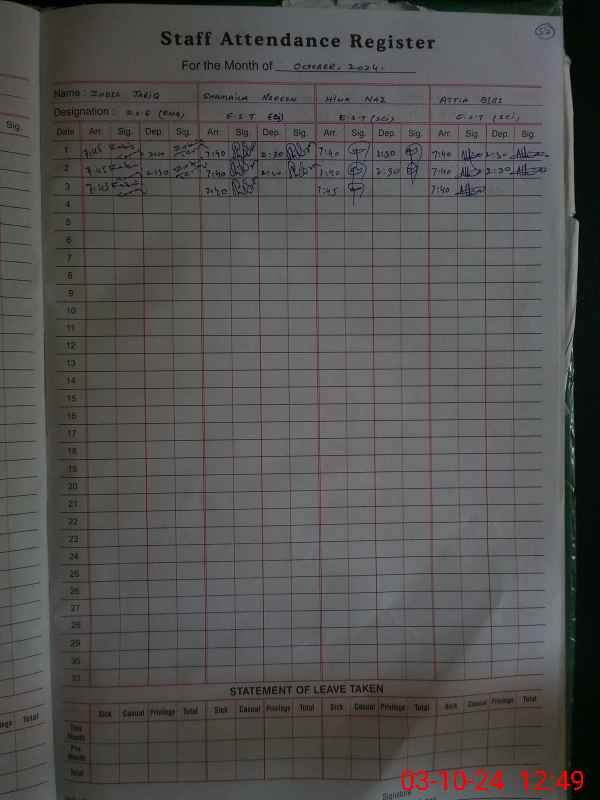 52
Staff Attendance Register
For the Month of October, 2024.
Name : Indra Tariq Shamaila Noreen Hina Naz Attia Bibi
Designation : E.S.T E.S.T (Sci) E.S.T (Sci)
Sig.
Date Arr. Sig. Dep. Sig. Arr. Sig. Dep. Sig. Arr. Sig. Dep. Sig. Arr. Sig. Dep. Sig.
1 7:45 7:40 2:30 7:40 2:30 7:40 2:30
2 7:45 2:30 7:40 2:30 7:40 2:30 7:40 2:30
3 7:45 7:40 7:45 7:40
4
5
6
7
8
9
10
11
12
13
14
15
16
17
18
19
20
21
22
23
24
25
26
27
28
29
30
31
STATEMENT OF LEAVE TAKEN
Sick Casual Privilege Total Sick Casual Privilege Total Sick Casual Privilege Total Sick Casual Privilege Total
Total
This Month
Pre Month
Total
Signature
03-10-24 12:49